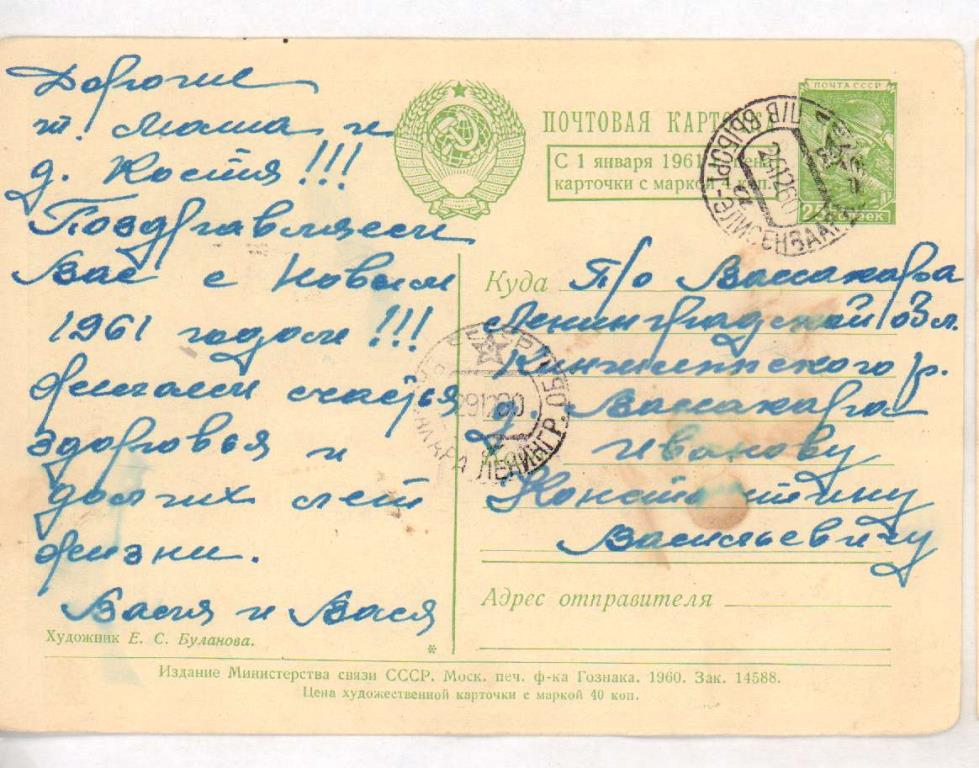 Дорогие
т. Маша и
д. Костя!!!
Поздравляем
Вас с Новым
1961 годом!!!
желаем счастья
здоровья и
долгих лет
жизни.
Валя и Вася
Художник Е. С. Буланова.
*
ПОЧТОВАЯ КАРТОЧКА
С 1 января 1961 цена
карточки с маркой 4 коп.
ПОЧТА СССР
ПВ ВЫБОРГ-ЭЛИСЕНВААРА
251260
Куда П/о Вассакара
Ленинградской обл.
р.
д. Вассакара
Иванову
Константину
Васильевичу
СССР
291260
ЛЕНИНГР. ОБЛ
Адрес отправителя
Издание Министерства связи СССР. Моск. печ. ф-ка Гознака. 1960. Зак. 14588.
Цена художественной карточки с маркой 40 коп.